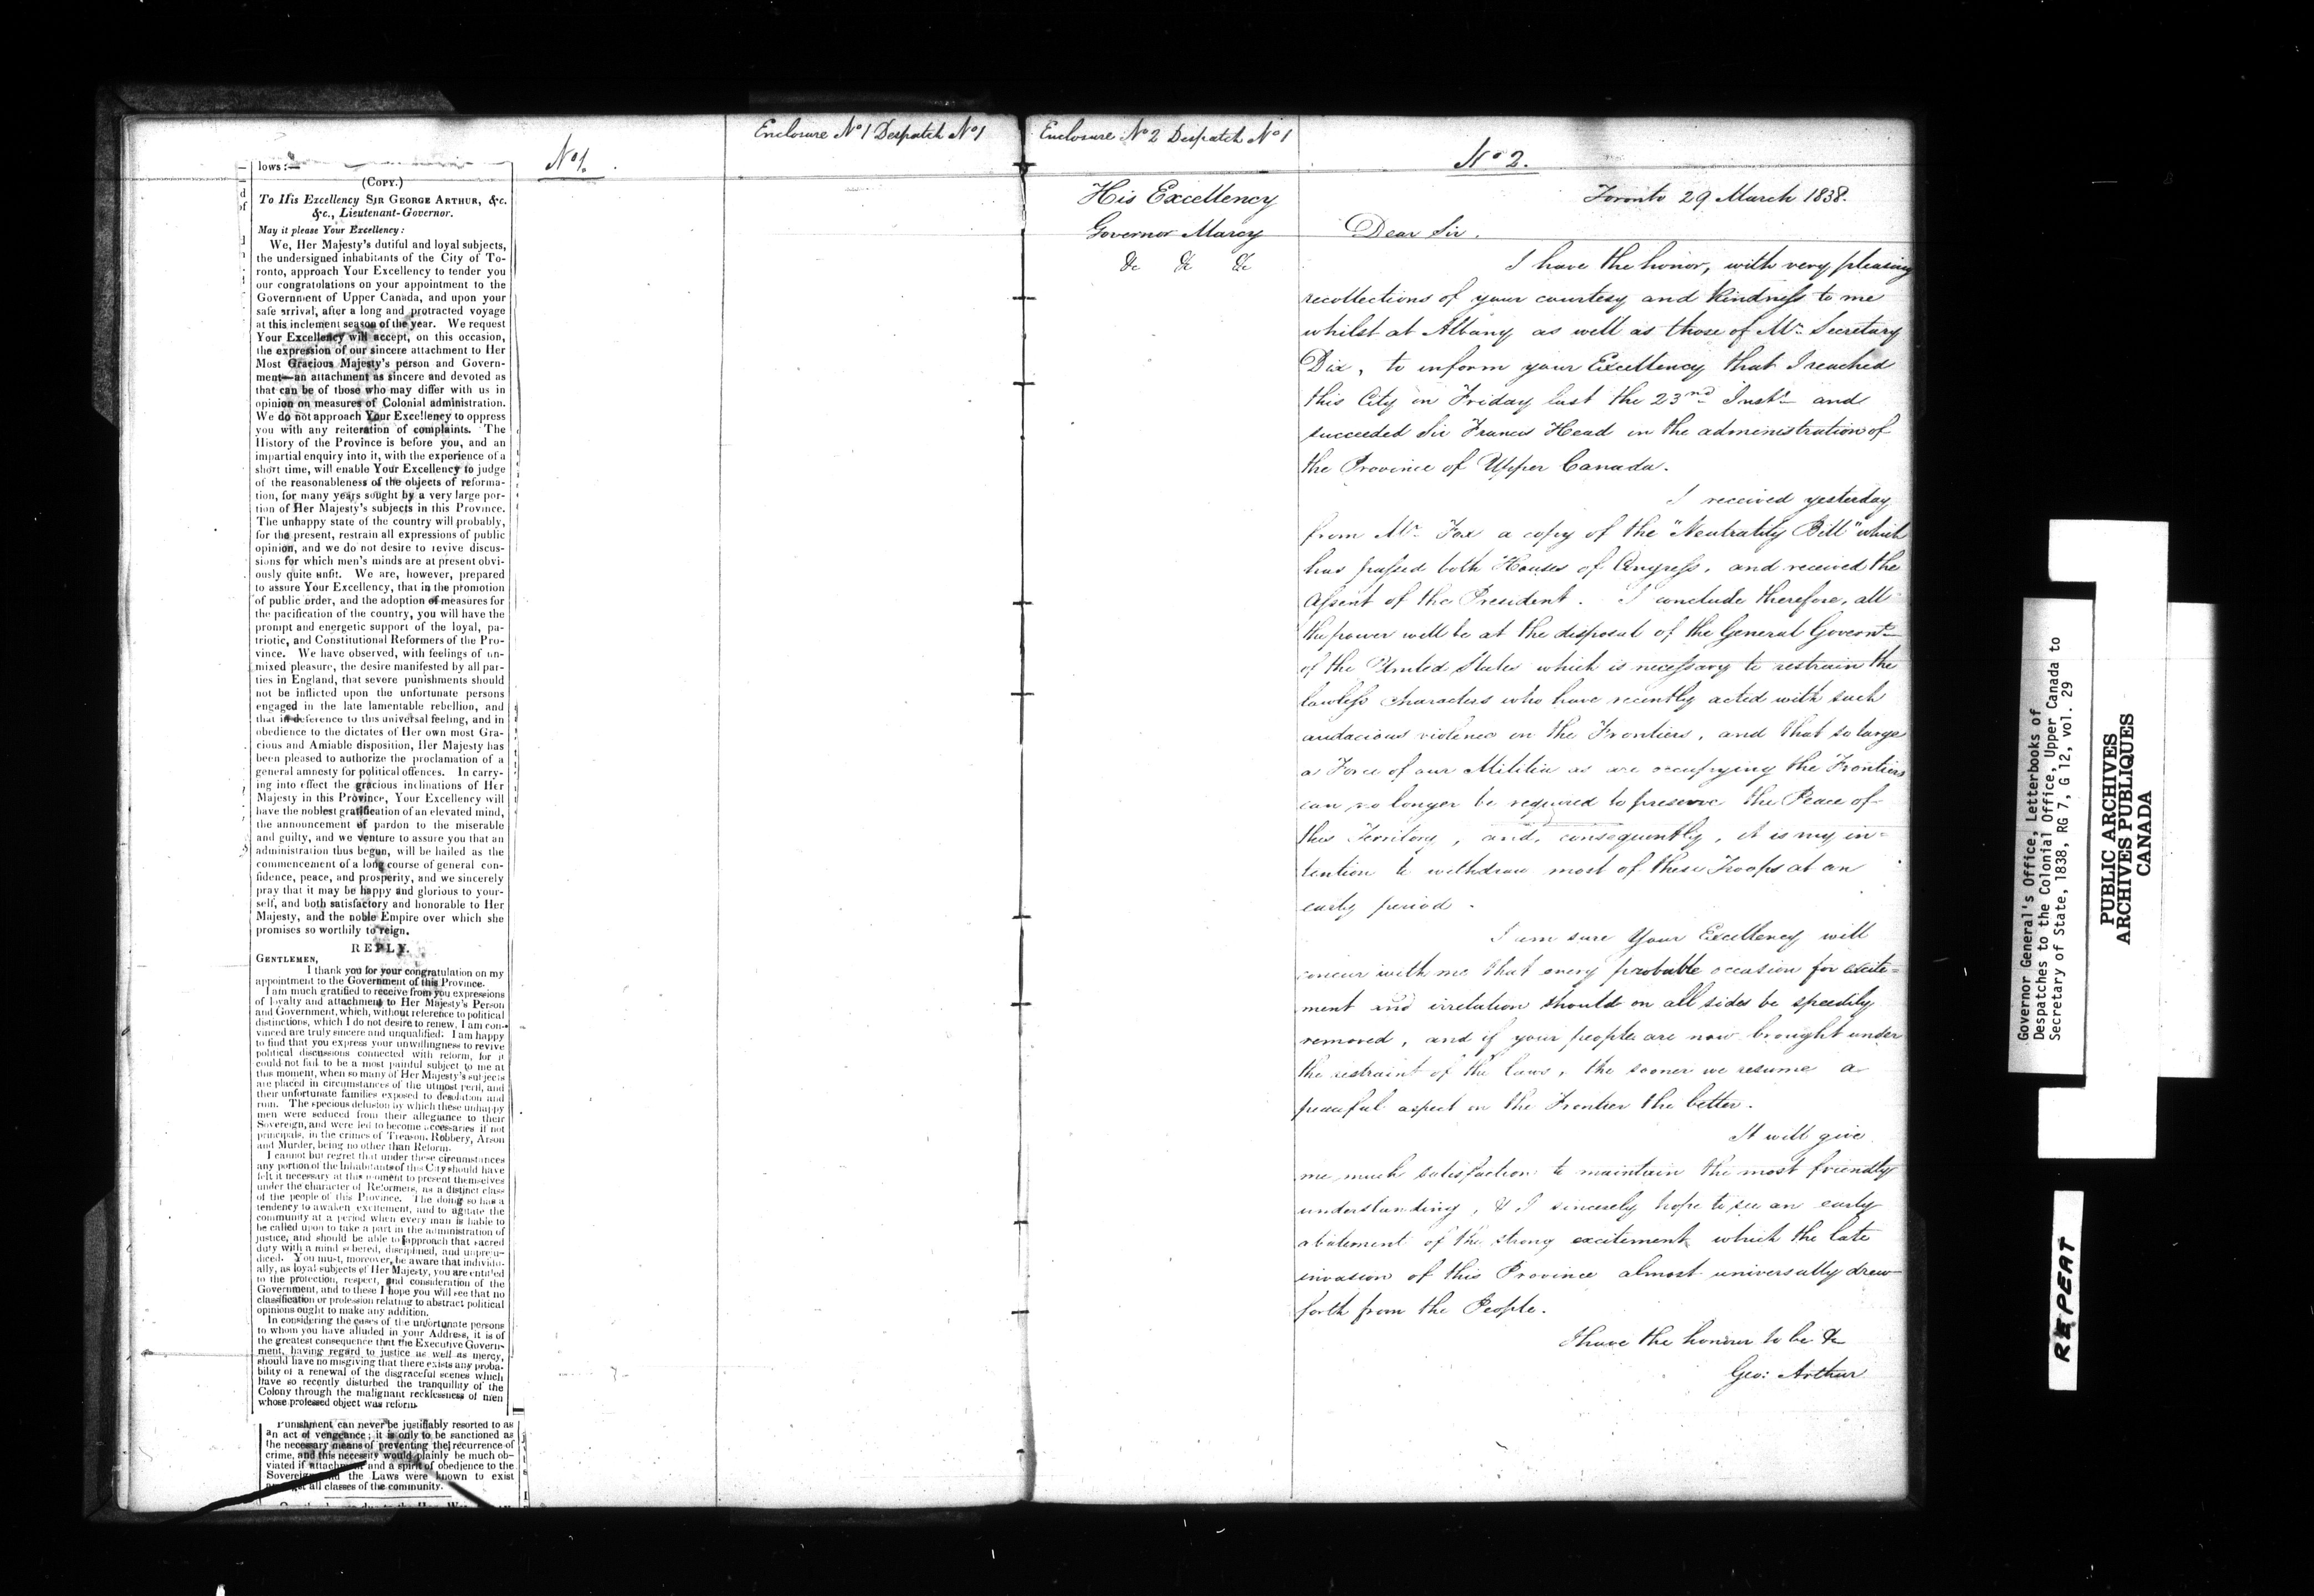 Enclosure No 1 Despatch No 1
No 1.
lows:—
(COPY.)
To His Excellency SIR GEORGE ARTHUR, &c.
&c., Lieutenant-Governor.
May it please Your Excellency:
We, Her Majesty's dutiful and loyal subjects,
the undersigned inhabitants of the City of To-
ronto, approach Your Excellency to tender you
our congratulations on your appointment to the
Government of Upper Canada, and upon your
safe arrival, after a long and protracted voyage
at this inclement season of the year. We request
Your Excellency will accept, on this occasion,
the expression of our sincere attachment to Her
Most Gracious Majesty's person and Govern-
ment—an attachment as sincere and devoted as
that can be of those who may differ with us in
opinion on measures of Colonial administration.
We do not approach Your Excellency to oppress
you with any reiteration of complaints. The
History of the Province is before you, and an
impartial enquiry into it, with the experience of a
short time, will enable Your Excellency to judge
of the reasonableness of the objects of reforma-
tion, for many years sought by a very large por-
tion of Her Majesty's subjects in this Province.
The unhappy state of the country will probably,
for the present, restrain all expressions of public
opinion, and we do not desire to revive discus-
sions for which men's minds are at present obvi-
ously quite unfit. We are, however, prepared
to assure Your Excellency, that in the promotion
of public order, and the adoption of measures for
the pacification of the country, you will have the
prompt and energetic support of the loyal, pa-
triotic, and Constitutional Reformers of the Pro-
vince. We have observed, with feelings of un-
mixed pleasure, the desire manifested by all par-
ties in England, that severe punishments should
not be inflicted upon the unfortunate persons
engaged in the late lamentable rebellion, and
that in deference to this universal feeling, and in
obedience to the dictates of Her own most Gra-
cious and Amiable disposition, Her Majesty has
been pleased to authorize the proclamation of a
general amnesty for political offences. In carry-
ing into effect the gracious inclinations of Her
Majesty in this Province, Your Excellency will
have the noblest gratification of an elevated mind,
the announcement of pardon to the miserable
and guilty, and we venture to assure you that an
administration thus begun, will be hailed as the
commencement of a long course of general con-
fidence, peace, and prosperity, and we sincerely
pray that it may be happy and glorious to your-
self, and both satisfactory and honorable to Her
Majesty, and the noble Empire over which she
promises so worthily to reign.
REPLY.
GENTLEMEN,
I thank you for your congratulation on my
appointment to the Government of this Province.
I am much gratified to receive from you expressions
of loyalty and attachment to Her Majesty's Person
and Government, which, without reference to political
distinctions, which I do not desire to renew, I am con-
vinced are truly sincere and unqualified. I am happy
to find that you express your unwillingness to revive
political discussions connected with reform, for it
could not fail to be a most painful subject to me at
this moment, when so many of Her Majesty's subjects
are placed in circumstances of the utmost peril, and
their unfortunate families exposed to desolation and
ruin. The specious delusion by which these unhappy
men were seduced from their allegiance to their
Sovereign, and were led to become accessaries if not
principals, in the crimes of Treason, Robbery, Arson
and Murder, being no other than Reform.
I cannot but regret that under these circumstances
any portion of the Inhabitants of this City should have
felt it necessary at this moment to present themselves
under the character of Reformers, as a distinct class
of the people of this Province. The doing so has a
tendency to awaken excitement, and to agitate the
community at a period when every man is liable to
be called upon to take a part in the administration of
justice, and should be able to approach that sacred
duty with a mind sobered, disciplined, and unpreju-
diced. You must, moreover, be aware that individu-
ally, as loyal subjects of Her Majesty, you are entitled
to the protection, respect, and consideration of the
Government, and to these I hope you will see that no
classification or profession relating to abstract political
opinions ought to make any addition.
In considering the cases of the unfortunate persons
to whom you have alluded in your Address, it is of
the greatest consequence that the Executive Govern-
ment, having regard to justice as well as mercy,
should have no misgiving that there exists any proba-
bility of a renewal of the disgraceful scenes which
have so recently disturbed the tranquillity of the
Colony through the malignant recklessness of men
whose professed object was reform.
Punishment can never be justifiably resorted to as
an act of vengeance; it is only to be sanctioned as
the necessary means of preventing the recurrence of
crime, and this necessity would plainly be much ob-
viated if attachment and a spirit of obedience to the
Sovereign and the Laws were known to exist
amongst all classes of the community.
Enclosure No 2 Despatch No 1
No 2.
His Excellency
Governor Marcy
&c &c &c
Toronto 29 March 1838.
Dear Sir.
I have the honor, with very pleasing
recollections of your courtesy and kindness to me
whilst at Albany as well as those of Mr. Secretary
Dix, to inform your Excellency that I reached
this City on Friday last the 23rd Inst. and
succeeded Sir Francis Head in the administration of
the Province of Upper Canada.
I received yesterday
from Mr. Fox a copy of the "Neutrality Bill" which
has passed both Houses of Congress, and received the
Assent of the President. I conclude therefore, all
the power will be at the disposal of the General Governt.
of the United States which is necessary to restrain the
lawless characters who have recently acted with such
audacious violence on the Frontiers, and that so large
a Force of our Militia as are occupying the Frontiers
can no longer be required to preserve the Peace of
this Territory, and, consequently, it is my in-
tention to withdraw most of these Troops at an
early period.
I am sure Your Excellency will
concur with me that every probable occasion for excite-
ment and irritation should on all sides be speedily
removed, and if your people are now brought under
the restraint of the laws, the sooner we resume a
peaceful aspect on the Frontier the better.
It will give
me much satisfaction to maintain the most friendly
understanding, & I sincerely hope to see an early
abatement of the strong excitement which the late
invasion of this Province almost universally drew
forth from the People.
I have the honour to be &c
Geo: Arthur
Governor General's Office, Letterbooks of
Despatches to the Colonial Office, Upper Canada to
Secretary of State, 1838, RG 7, G 12, vol. 29
PUBLIC ARCHIVES
ARCHIVES PUBLIQUES
CANADA
REPEAT